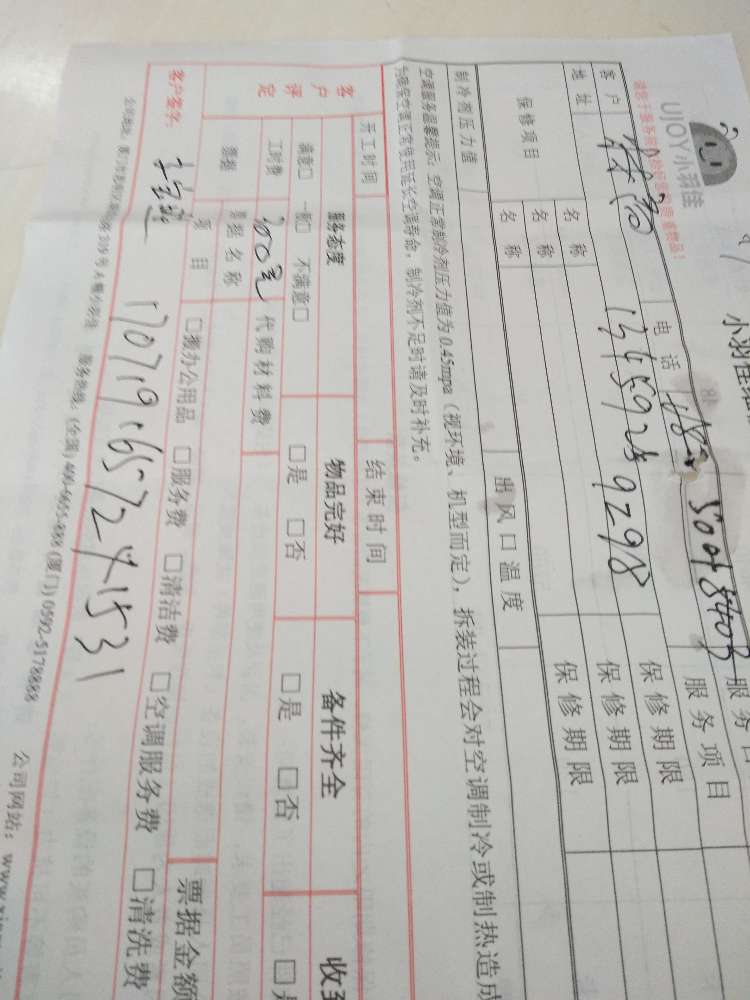 UJOY小羽佳
小羽佳
服务项目
客户
电话
13459289298
地址
保修项目
名称
保修期限
名称
保修期限
名称
保修期限
制冷剂压力值
出风口温度
空调服务温馨提示：空调正常制冷剂压力值为0.45mpa（视环境、机型而定），拆装过程会对空调制冷或制热造成
为确保空调正常使用延长空调寿命，制冷剂不足时请及时补充。
开工时间
结束时间
客户评定
服务态度
物品完好
备件齐全
收到
满意□ 一般□ 不满意□
□是 □否
□是 □否
工时费
200元
代购材料费
票据
票据名称
票据金额
项目
□搬办公用品 □服务费 □清洁费 □空调服务费 □清洗费
客户签字：
170719:657241531
服务热线：(全国) 400-6615-888 (厦门) 0592-5178888
公司网站：